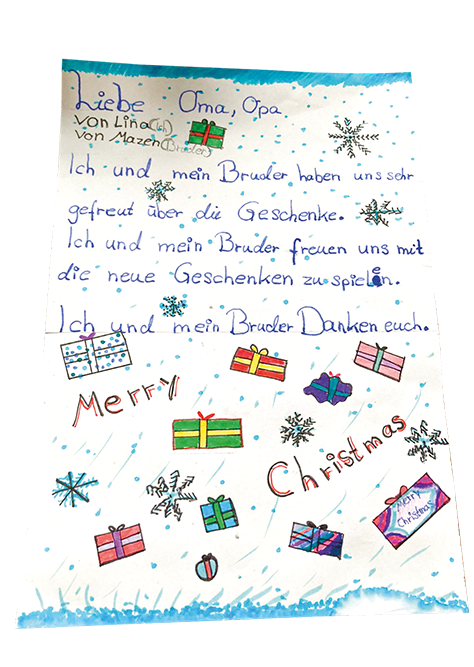 Liebe Oma, Opa
von Lina (Ich)
von Mazen (Bruder)
Ich und mein Bruder haben uns sehr
gefreut über die Geschenke.
Ich und mein Bruder freuen uns mit
die neue Geschenken zu spielen.
Ich und mein Bruder Danken euch.
Merry
Christmas
Merry
Christmas